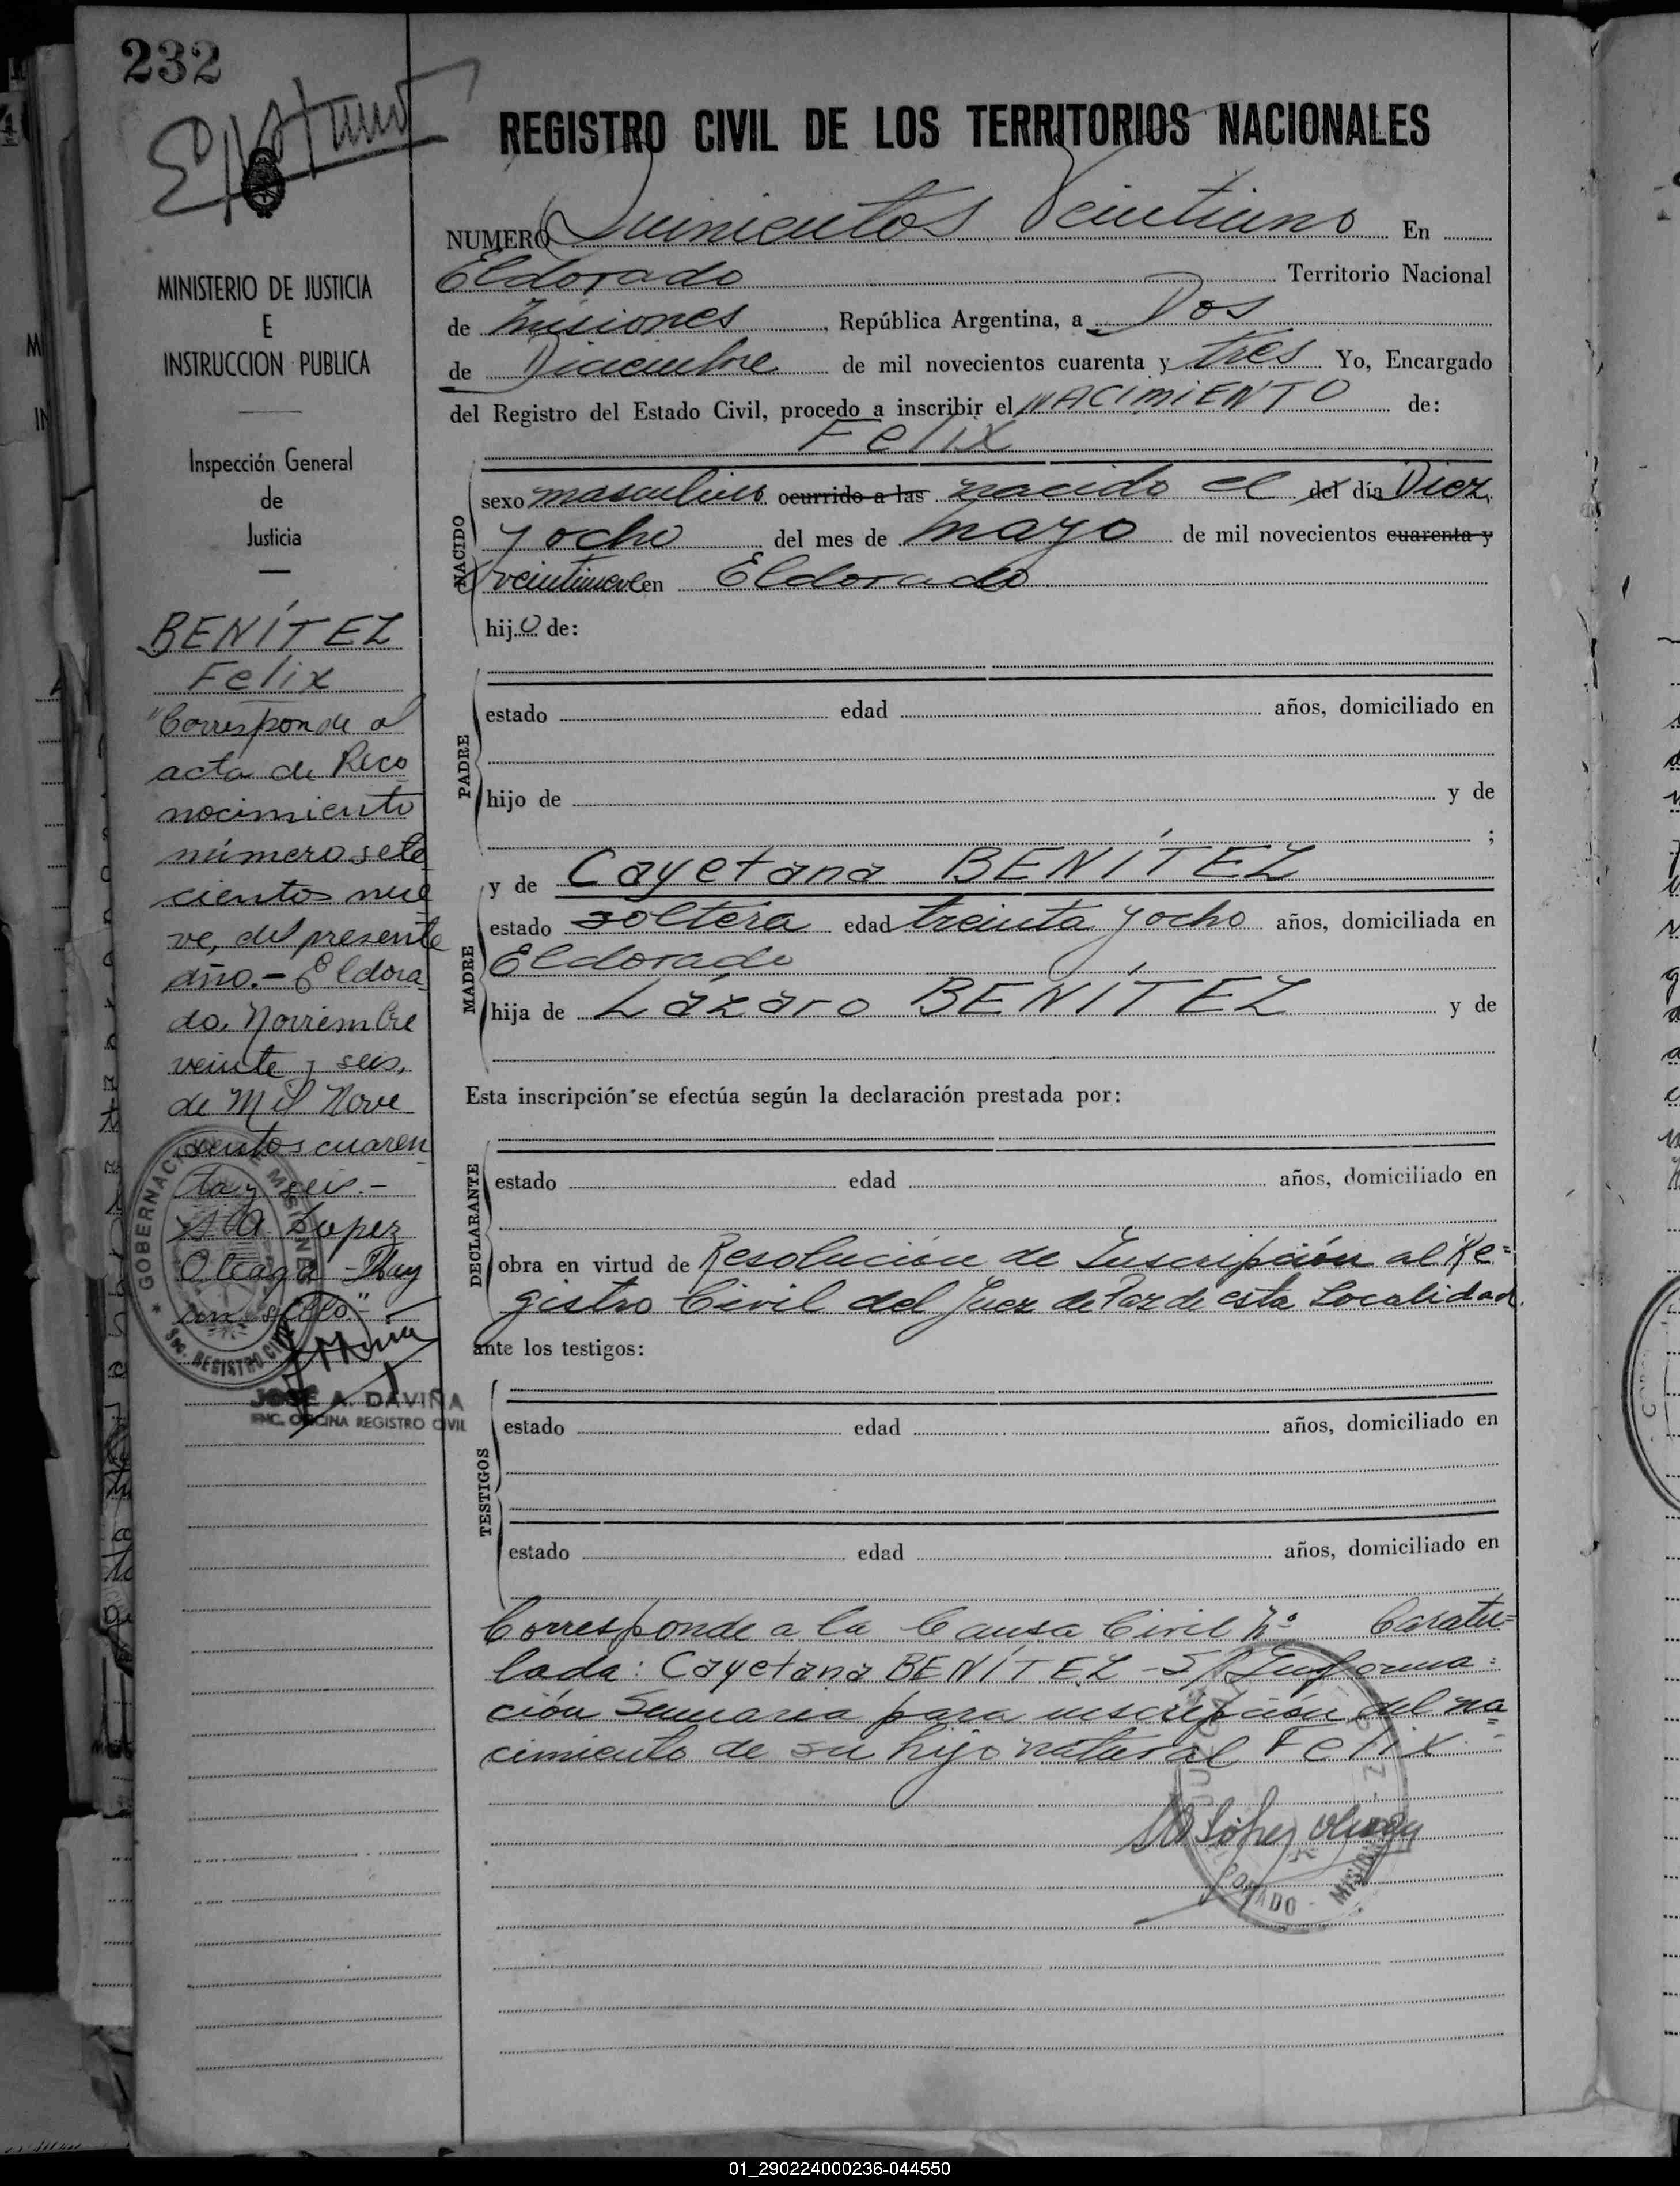 232
REGISTRO CIVIL DE LOS TERRITORIOS NACIONALES
MINISTERIO DE JUSTICIA
E
INSTRUCCION PUBLICA
Inspección General
de
Justicia
BENÍTEZ
Felix
"Corresponde al
acta de Reco
nocimiento
número sete
cientos nue
ve, del presente
año.- Eldora
do, Noviembre
veinte y seis,
de Mil Nove
cientos cuaren
ta y seis.-
S A Lopez
Oteagui - Hay
un sello."-
GOBERNACION DE MISIONES
Sec. REGISTRO CIVIL
JOSE A. DAVIÑA
ENC. OFICINA REGISTRO CIVIL
NUMERO Quinientos Veintiuno En
Eldorado Territorio Nacional
de Misiones, República Argentina, a Dos
de Diciembre de mil novecientos cuarenta y tres Yo, Encargado
del Registro del Estado Civil, procedo a inscribir el NACIMIENTO de:
Felix
NACIDO
sexo masculino ocurrido a las nacido el del día Diez
y ocho del mes de Mayo de mil novecientos cuarenta y
en Eldorado
hijo de:
PADRE
estado edad años, domiciliado en
hijo de y de
;
y de Cayetana BENÍTEZ
MADRE
estado soltera edad treinta y ocho años, domiciliada en
Eldorado
hija de Lázaro BENÍTEZ y de
Esta inscripción se efectúa según la declaración prestada por:
DECLARANTE
estado edad años, domiciliado en
obra en virtud de Resolución de Inscripción al Re=
gistro Civil del Juez de Paz de esta Localidad.
ante los testigos:
TESTIGOS
estado edad años, domiciliado en
estado edad años, domiciliado en
Corresponde a la Causa Civil Nº Caratu=
lada: Cayetana BENÍTEZ - S/ Informa=
ción Sumaria para inscripción del na
cimiento de su hijo natural Felix.-
MISIONES
01_290224000236-044550